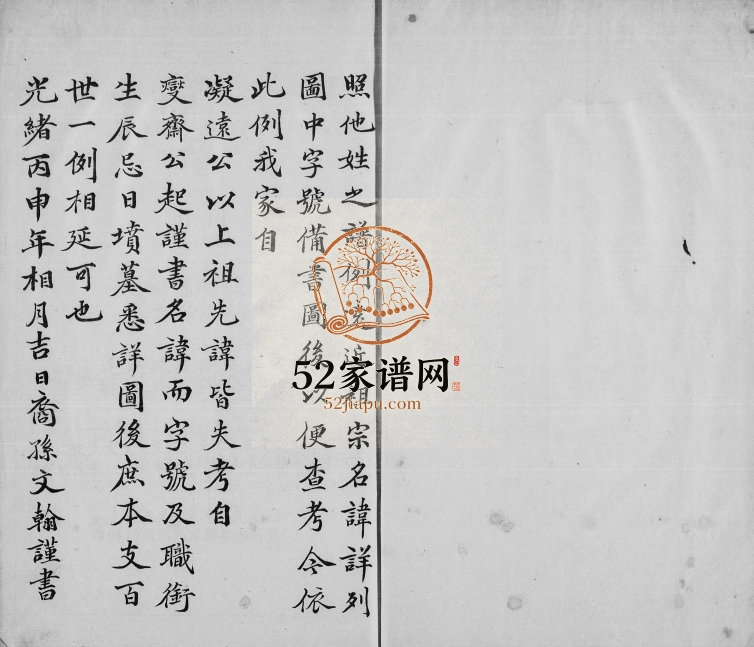 照他姓之譜例遠近祖宗名諱詳列
圖中字號備書圖後以便查考今依
此例我家自
凝遠公以上祖先諱皆失考自
變齋公起謹書名諱而字號及職銜
生辰忌日墳墓悉詳圖後庶本支百
世一例相延可也
光緒丙申年相月吉日裔孫文翰謹書
52家谱网
52jiapu.com